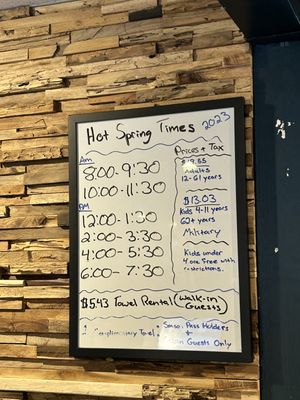 Hot Spring Times 2023
Am
8:00-9:30
10:00-11:30
PM
12:00-1:30
2:00-3:30
4:00-5:30
6:00-7:30
Prices + Tax
Adults
12-61 years
$13.03
Kids 4-11 years
62+ years
Military
Kids under
4 are free with
restrictions.
$5.43 Towel Rental (Walk-in
Guests)
1 Complimentary Towel
Pass Holders
+
Guests Only